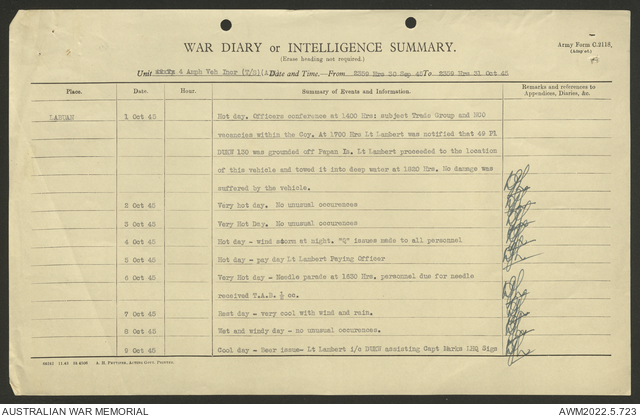 Army Form C.2118.
(Adapted.)
WAR DIARY or INTELLIGENCE SUMMARY.
(Erase heading not required.)
Unit 4 Amph Veh (A) Date and Time.—From 2359 Hrs 30 Sep 45 To 2359 Hrs 31 Oct 45
Place. Date. Hour. Summary of Events and Information. Remarks and references to
Appendices, Diaries, &c.
LABUAN 1 Oct 45 Hot day. Officers conference at 1400 Hrs: subject Trade Group and NCO
vacancies within the Coy. At 1700 Hrs Lt Lambert was notified that 49 Pl
DUKW 130 was grounded off Papan Is. Lt Lambert proceeded to the location
of this vehicle and towed it into deep water at 1820 Hrs. No damage was
suffered by the vehicle.
2 Oct 45 Very hot day. No unusual occurences
3 Oct 45 Very Hot Day. No unusual occurences
4 Oct 45 Hot day - wind storm at night. "Q" issues made to all personnel
5 Oct 45 Hot day - pay day Lt Lambert Paying Officer
6 Oct 45 Very Hot day - Needle parade at 1630 Hrs. personnel due for needle
received T.A.B. ½ cc.
7 Oct 45 Rest day - very cool with wind and rain.
8 Oct 45 Wet and windy day - no unusual occurences.
9 Oct 45 Cool day - Beer issue- Lt Lambert i/c DUKW assisting Capt Marks LHQ Sigs
A. H. Pettifer, Acting Govt. Printer.
AUSTRALIAN WAR MEMORIAL
AWM2022.5.723